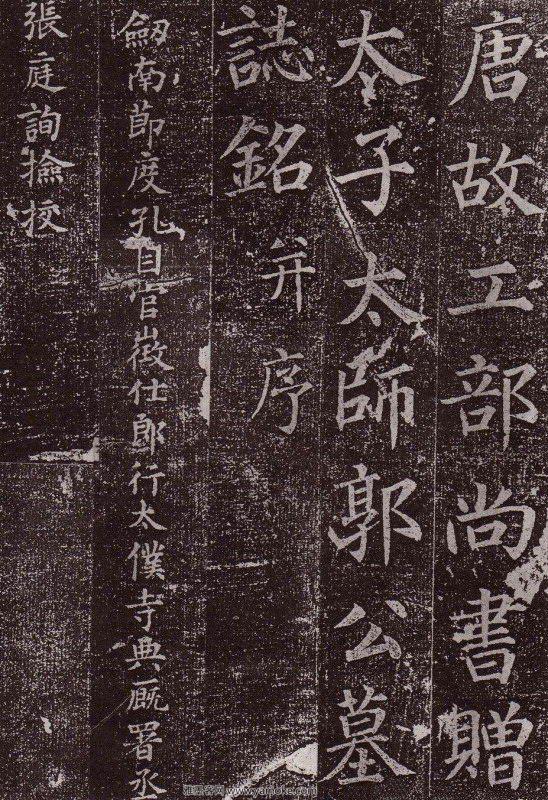 唐故工部尚書贈
太子太師郭公墓
誌銘并序
劒南節度孔目官徵仕郎行太僕寺典厩署丞
張庭詢撿挍
雅墨客网 www.yamoke.com